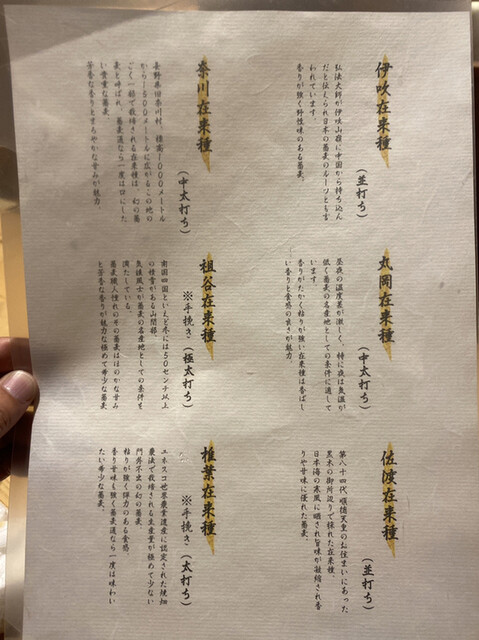 伊吹在来種
(並打ち)
弘法大師が伊吹山麓に中国から持ち込ん
だと伝えられ日本の蕎麦のルーツとも言
われています。
香りが強く野性味のある蕎麦。
丸岡在来種
(中太打ち)
昼夜の温度差が激しく、特に夜は気温が
低く蕎麦の名産地としての条件に適して
います。
香りがたかく粘りが強い在来種は香ばし
い香りと食感の良さが魅力。
佐渡在来種
(並打ち)
第八十四代 順徳天皇のお住まいにあった
黒木の御所辺りで採れた在来種。
日本海の寒風に晒され旨味が凝縮され香
りや甘味に優れた蕎麦。
奈川在来種
(中太打ち)
長野県旧奈川村、標高1000メートル
から1500メートルに広がるこの地の
ごく一部で栽培される在来種は、幻の蕎
麦と呼ばれ、蕎麦通なら一度は口にした
い貴重な蕎麦。
芳香な香りとまろやかな甘みが魅力。
祖谷在来種
※手挽き(極太打ち)
南国四国といえど冬には50センチ以上
の積雪がある山間部。
気候風土が蕎麦の名産地としての条件を
満たしている。
蕎麦職人憧れのその蕎麦はほのかな甘み
と芳香な香りが魅力な極めて希少な蕎麦
椎葉在来種
※手挽き(太打ち)
ユネスコ世界農業遺産に認定された焼畑
農法で栽培される生産量が極めて少ない
門外不出の幻の蕎麦。
粘りが強く弾力のある食感、
香り甘味も強く蕎麦通なら一度は味わい
たい希少な蕎麦。